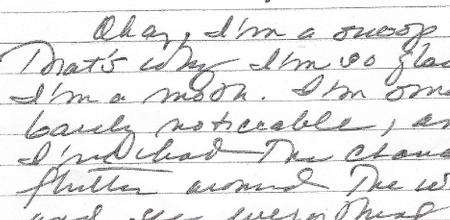 Okay, I'm a swoop
That's why I'm so glad
I'm a moth. I'm
barely noticeable, an
I've had the chanc
flutter around the w
and see everything